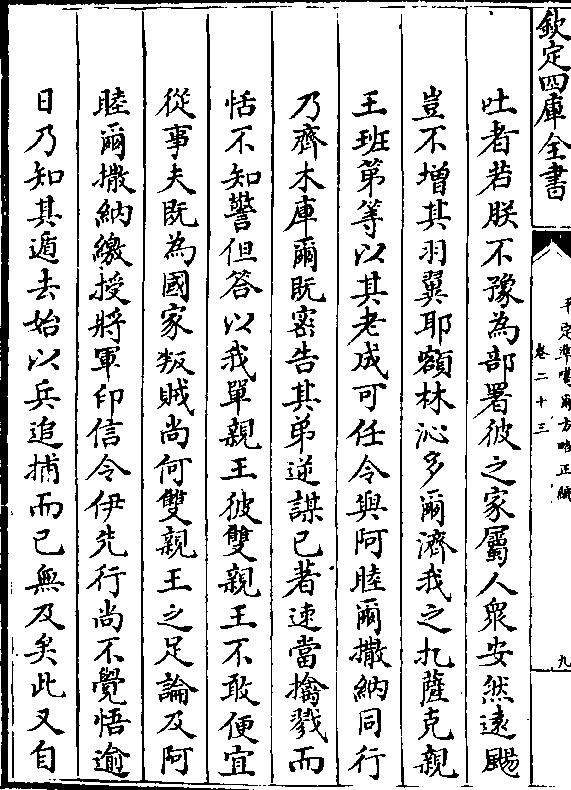 欽定四庫全書
平定準噶爾方略正編
卷二十三
九
吐者若朕不豫為部署彼之家屬人衆安然遠颺
豈不增其羽翼耶額林沁多爾濟我之扎薩克親
王班第等以其老成可任令與阿睦爾撒納同行
乃齊木庫爾既密告其弟逆謀已著速當擒戮而
恬不知警但答以我單親王彼雙親王不敢便宜
從事夫既為國家叛賊尚何雙親王之足論及阿
睦爾撒納繳授將軍印信令伊先行尚不覺悟逾
日乃知其遁去始以兵追捕而已無及矣此又自